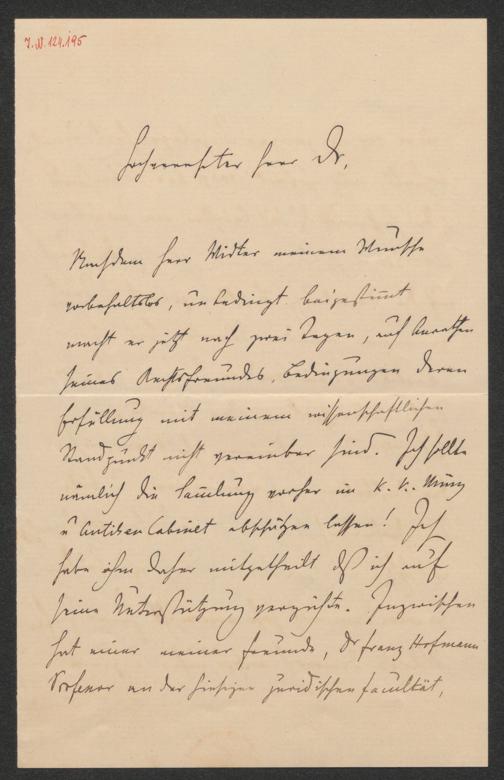 J.N. 124.195
Hochverehrter Herr Dr,
Nachdem Herr Widter meinem Wunsche
vorbehaltslos, unbedingt beigestimmt
macht er jetzt nach zwei Tagen, auf Anrathen
seines Rechtsfreundes, Bedingungen deren
Erfüllung mit meinem wissenschaftlichen
Standpunkt nicht vereinbar sind. Ich sollte
nämlich die Samlung vorher im K. K. Münz
u Antiken Cabinet abschätzen lassen! Ich
habe ihm daher mitgetheilt dß ich auf
seine Unterstützung verzichte. Inzwischen
hat einer meiner Freunde, Dr Franz Hofmann
Professor an der hiesigen juridischen Facultät,